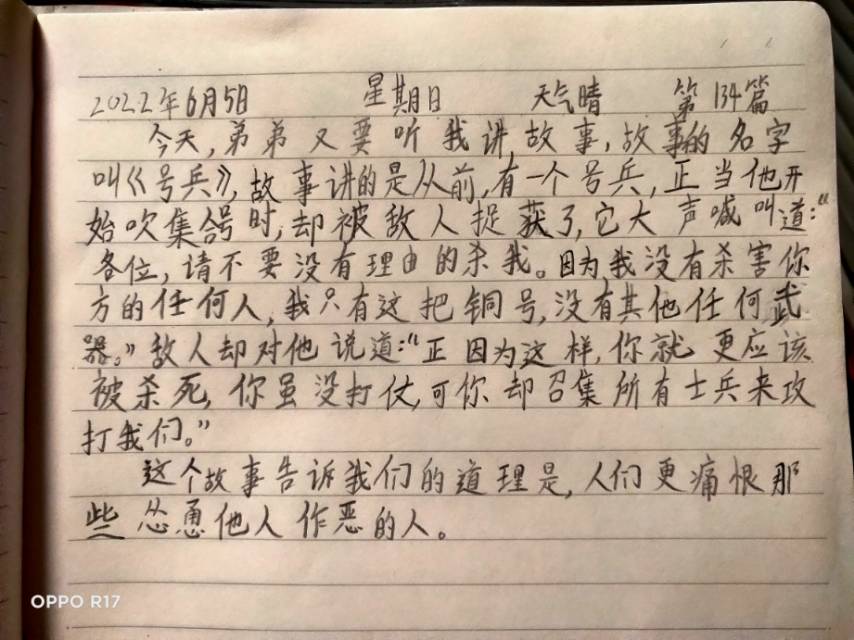 2022年6月5日 星期日 天气晴 第134篇
今天,弟弟又要听我讲故事,故事的名字
叫《号兵》,故事讲的是从前,有一个号兵,正当他开
始吹集合号时,却被敌人捉获了,它大声喊叫道:“
各位,请不要没有理由的杀我。因为,我没有杀害你
方的任何人,我只有这把铜号,没有其他任何武
器。”敌人却对他说道:“正因为这样,你就更应该
被杀死,你虽没打仗,可你却召集所有士兵来攻
打我们。”
这个故事告诉我们的道理是,人们更痛恨那
些怂恿他人作恶的人。
OPPO R17